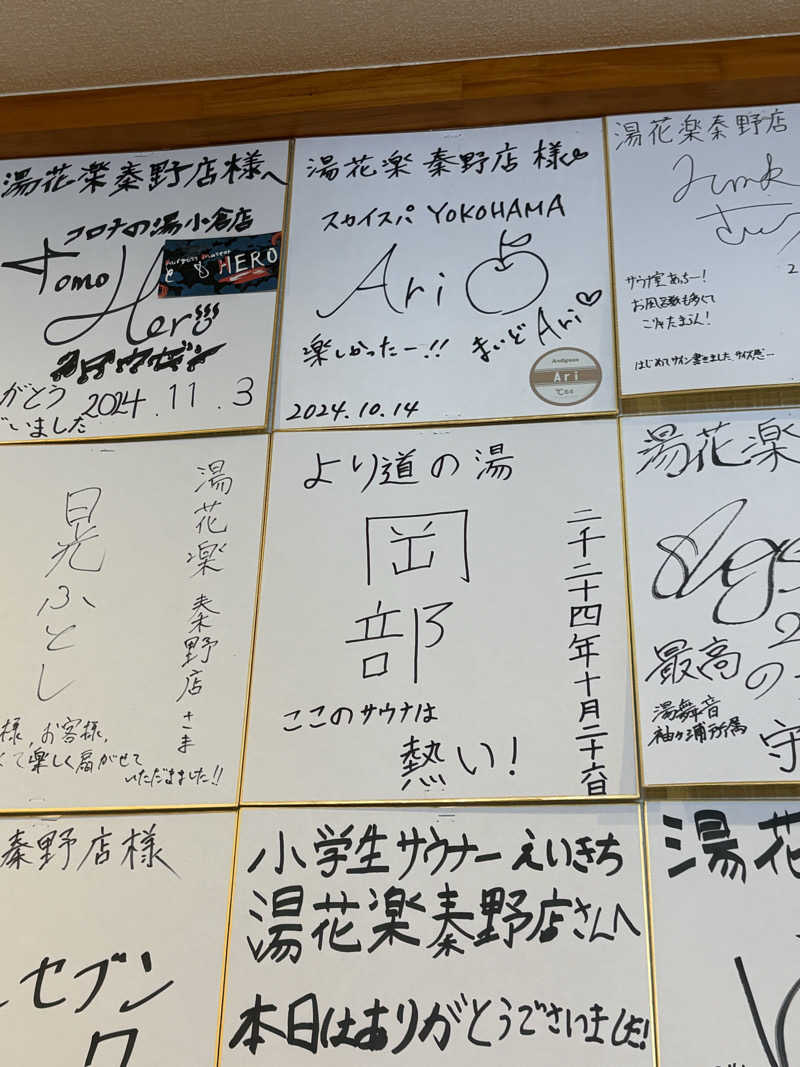 湯花楽秦野店様へ
コロナの湯小倉店
Tomo
HERO
Hero
がとう
いました
2024.11.3
湯花楽 秦野店 様
スカイスパ YOKOHAMA
Ari
楽しかったー!! まいど Ari♡
Ari
2024.10.14
湯花楽秦野店
サウナ室あっちー!
お風呂数も多くて
こりゃたまらん!
はじめてサイン書きました サイズ感…
湯花楽 秦野店 さま
晃ふとし
様、お客様、
て楽しく扇がせて
いただきました!!
より道の湯
岡部
二千二十四年十月二十六日
ここのサウナは
熱い!
湯花楽
最高の
湯舞音
袖ヶ浦所属
守
秦野店様
セブン
小学生サウナー えいきち
湯花楽秦野店さんへ
本日はありがとうございました!
湯花